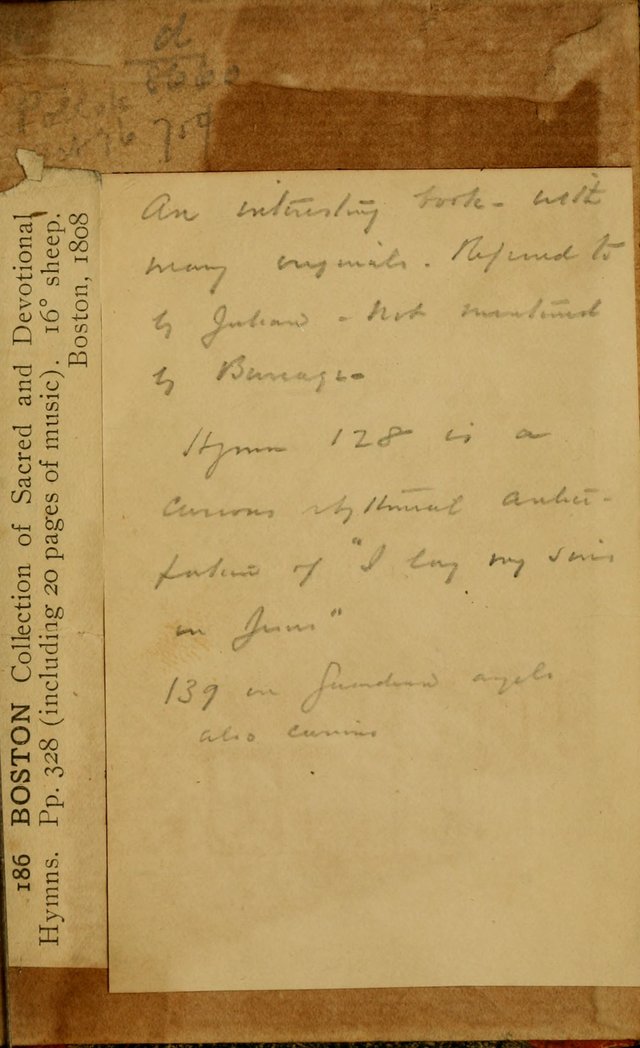 d
8660
709
186 BOSTON Collection of Sacred and Devotional
Hymns. Pp. 328 (including 20 pages of music). 16° sheep.
Boston, 1808
An interesting book - with
many originals. Referred to
by Julian - Not mentioned
by Burrage -
Hymn 128 is a
curious rhythmical antici-
pation of "I lay my sins
on Jesus"
139 on Guardian angels
also curious